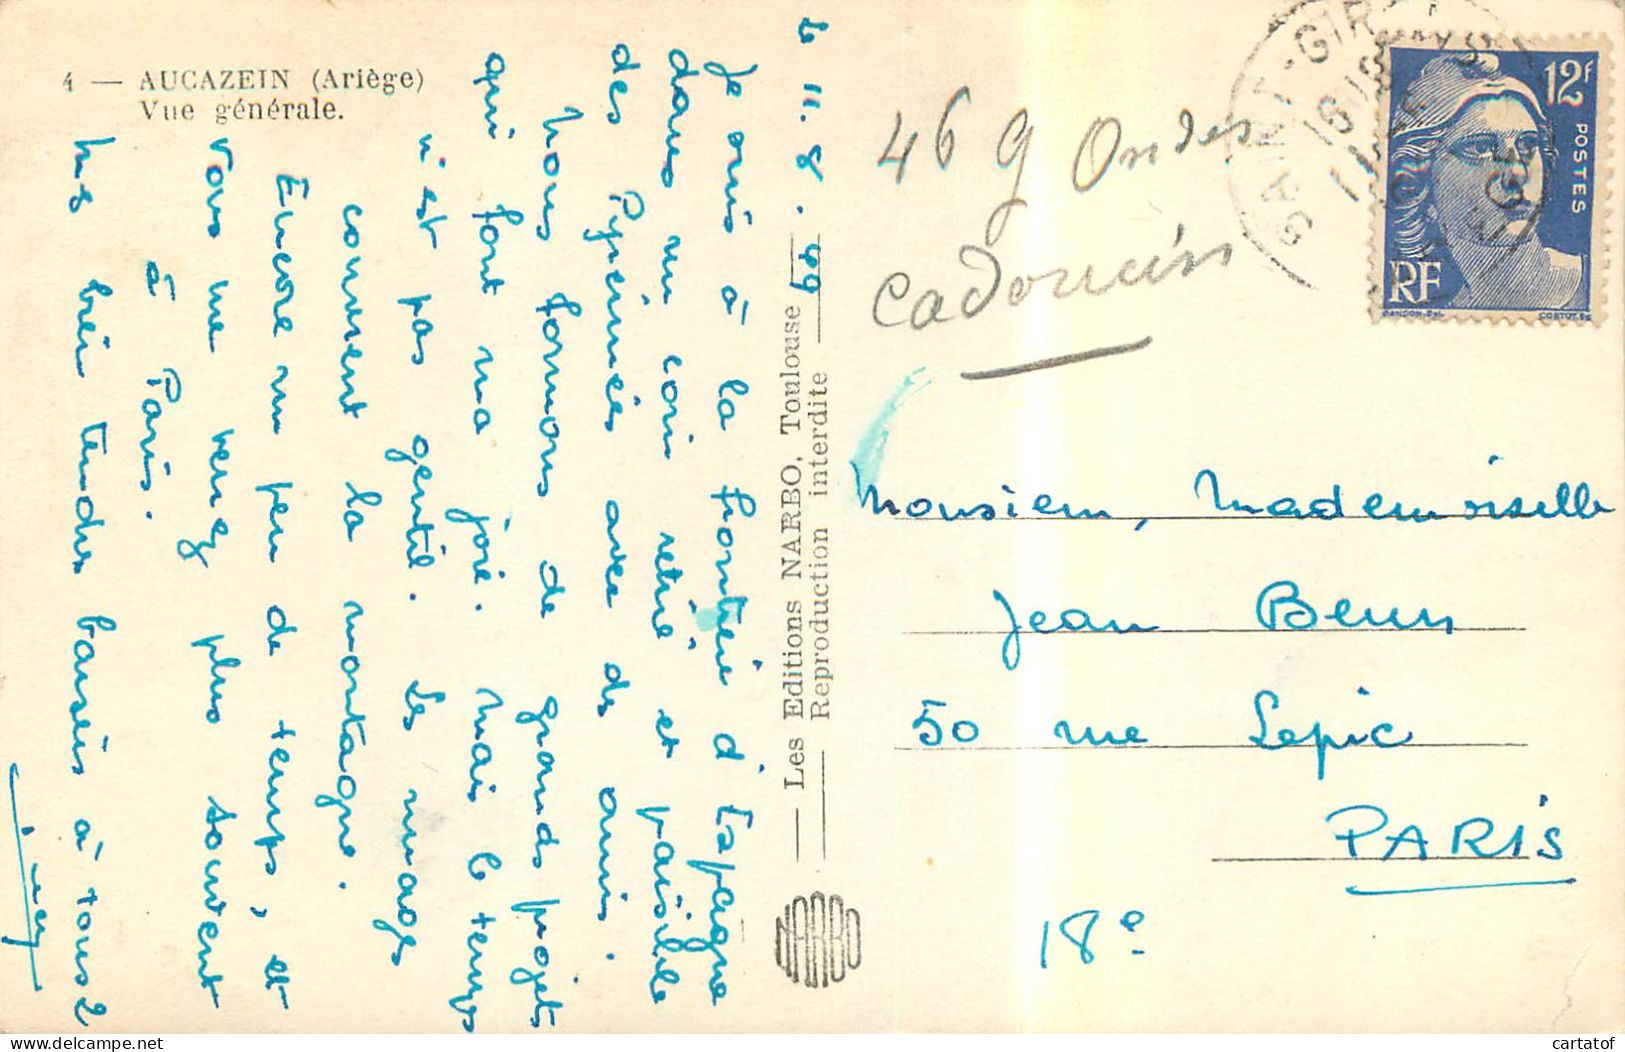 4 — AUCAZEIN (Ariège)
Vue générale.
le 11. 8. 49
Je suis à la frontière d'Espagne
dans un coin retiré et paisible
des Pyrénnées avec des amis.
Nous formons de grands projets
qui font ma joie. Mais le temps
n'est pas gentil. Les nuages
couvrent la montagne.
Encore un peu de temps, et
vous me verrez plus souvent
à Paris.
Mes bien tendres baisers à tous 2
Les Editions NARBO, Toulouse
Reproduction interdite
NARBO
46 9 Ondes
Cadoricin
SAINT-GIRONS
12f
POSTES
RF
GANDON.Del.
CORTOT.Sc
Monsieur, Mademoiselle
Jean
50 rue Lepic
PARIS
18e
cartatof